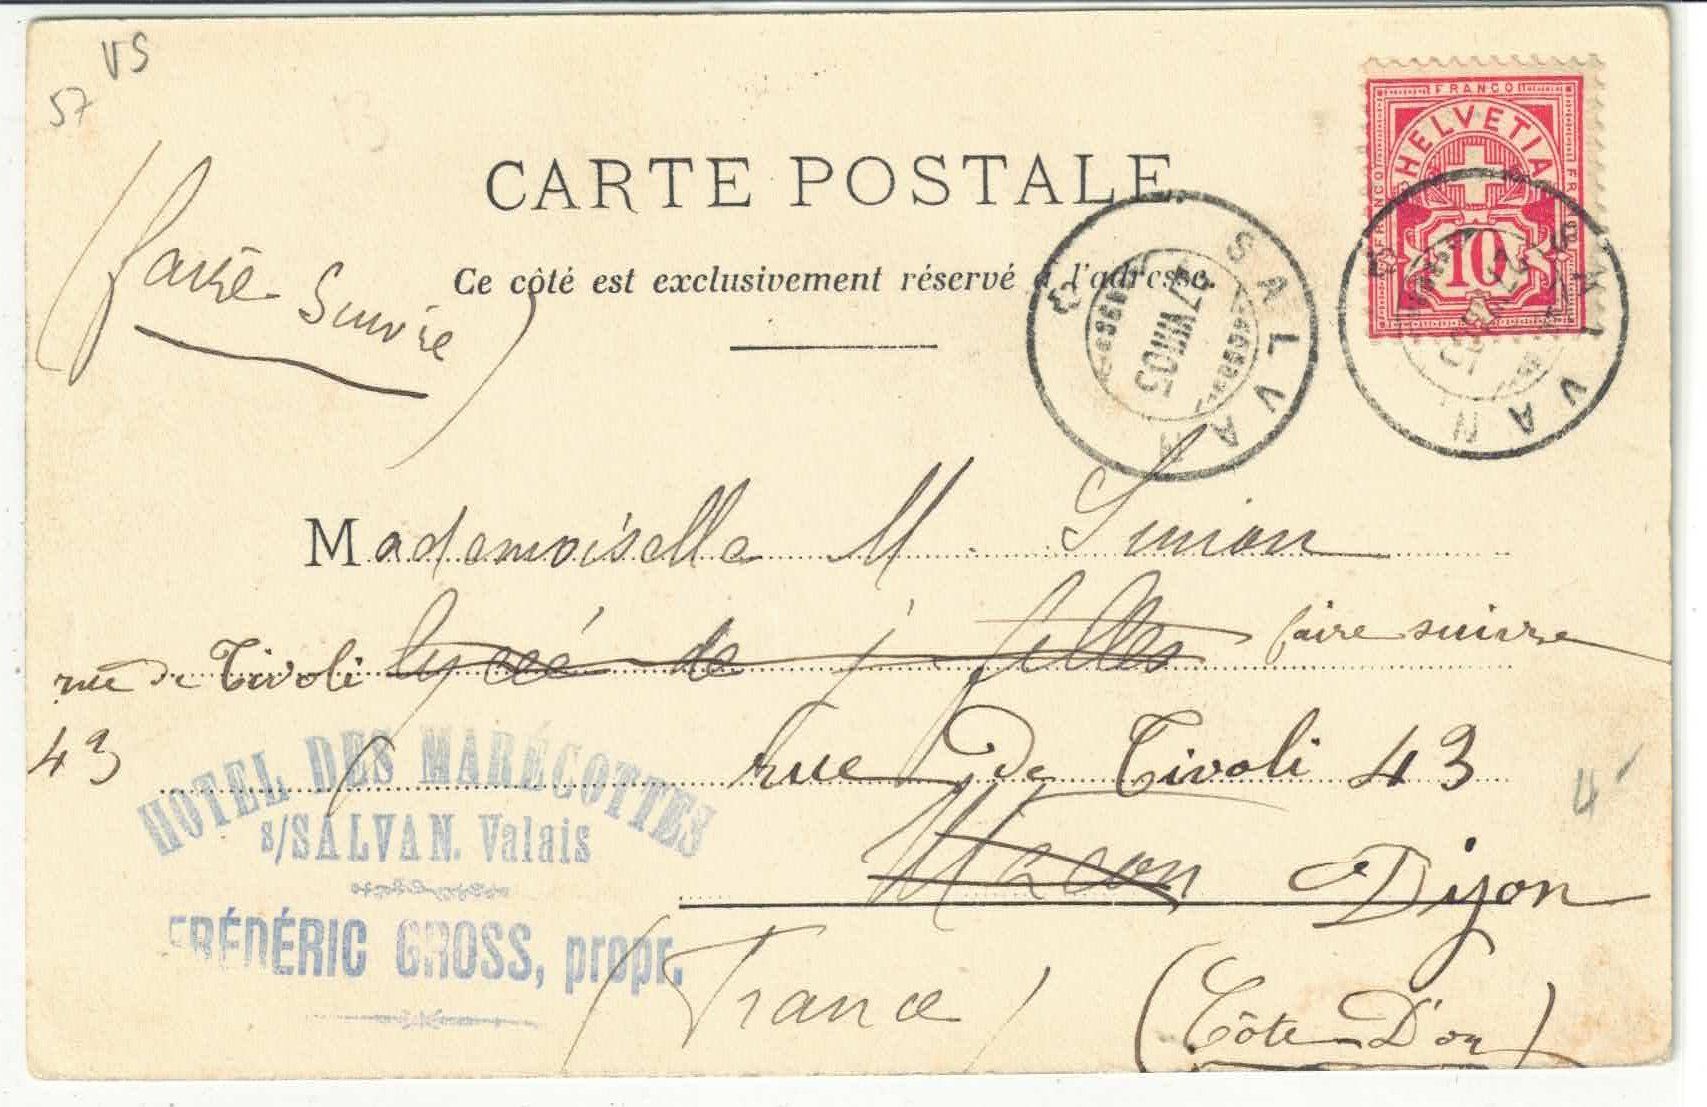 VS
57
FRANCO
HELVETIA
FRANCO
10
CARTE POSTALE.
(faire suivre)
Ce côté est exclusivement réservé à l'adresse.
SALVAN
SALVAN
Mademoiselle M. Simion
rue de Tivoli lycée de j. filles faire suivre
43
rue de Tivoli 43
HOTEL DES MARÉCOTTES
s/SALVAN. Valais
Macon Dijon
FRÉDÉRIC GROSS, propr.
(France)
(Côte D'or)